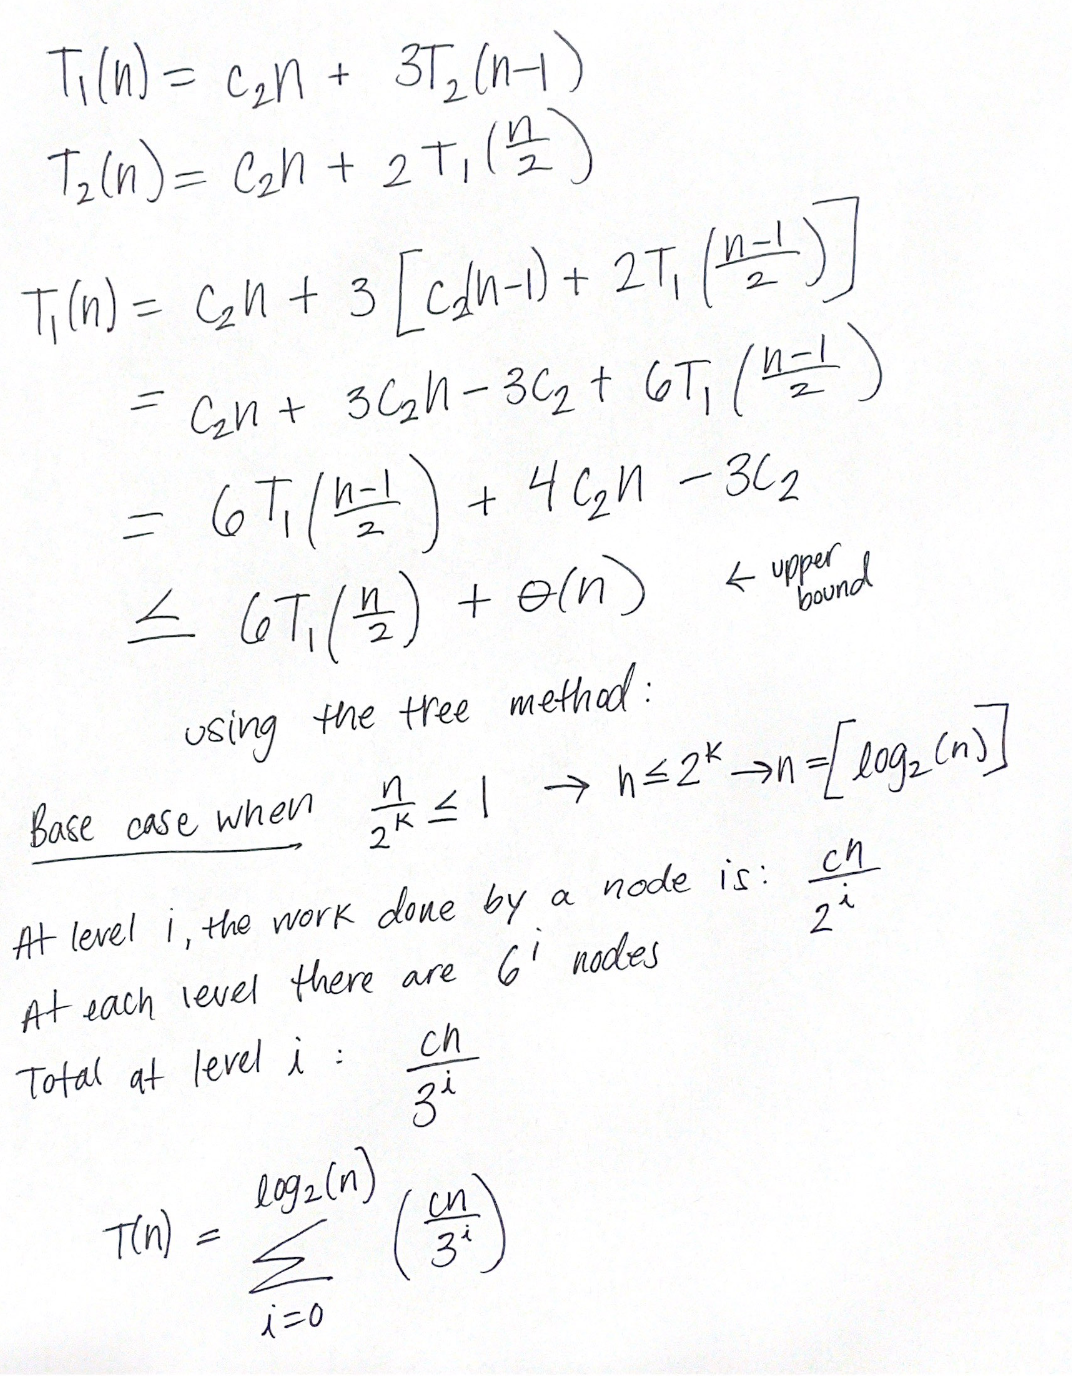 T₁(n) = c₂n + 3T₂(n-1)
T₂(n) = c₂n + 2T₁(n/2)
T₁(n) = c₂n + 3[c₂(n-1) + 2T₁((n-1)/2)]
= c₂n + 3c₂n - 3c₂ + 6T₁((n-1)/2)
= 6T₁((n-1)/2) + 4c₂n - 3c₂
≤ 6T₁(n/2) + θ(n) ← upper bound
using the tree method:
Base case when n/2^k ≤ 1 → n ≤ 2^k → n = [log₂(n)]
At level i, the work done by a node is: cn/2^i
At each level there are 6^i nodes
Total at level i : cn/3^i
T(n) = Σ_{i=0}^{log₂(n)} (cn/3^i)